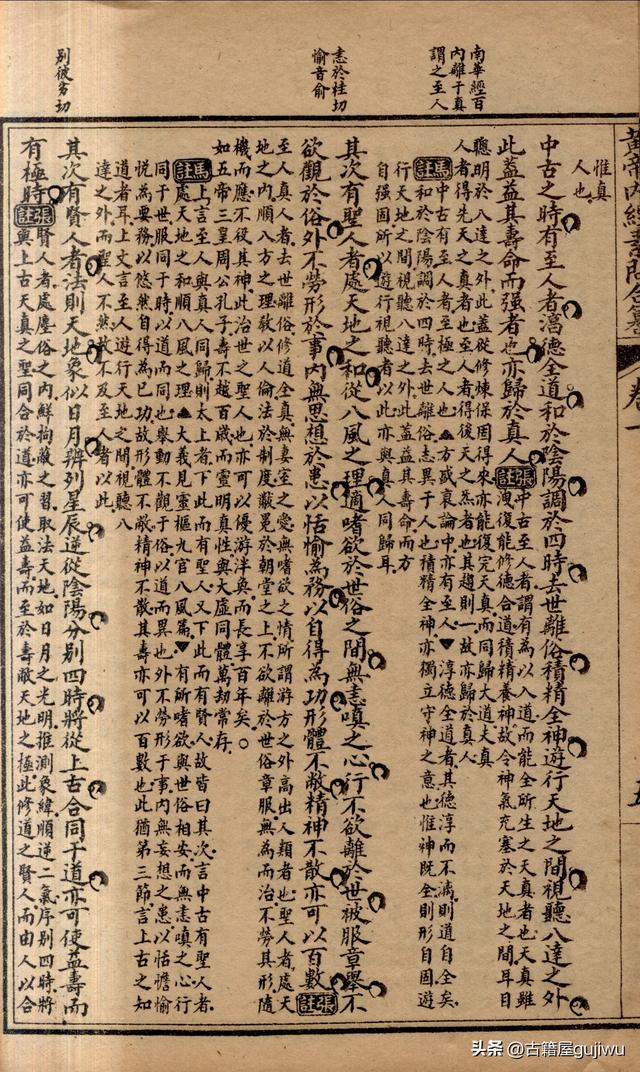 黃帝內經素問合纂
卷一
五
南華經百
內離于真
謂之至人
恚於桂切
愉音俞
別彼劣切
惟真
人也
中古之時有至人者淳德全道和於陰陽調於四時去世離俗積精全神遊行天地之間視聽八達之外
此蓋益其壽命而强者也亦歸於真人張註中古至人者謂有為以入道而能全所生之天真者也天真雖
洩復能修德合道積精養神故令神氣充塞於天地之間耳目
聰明於八達之外此蓋從修煉保固得來亦能復完天真而同歸大道夫真
人者得先天之真者也至人者得後天之炁者也其趨則一故亦歸於真人
馬註中古有至人者至極之人也▲方盛衰論中亦有至人▼淳德全道者其德淳而不漓則道自全矣
和於陰陽調於四時去世離俗志異于人也積精全神亦獨立守神之意也惟神既全則形自固遊
行天地之間視聽八達之外此蓋益其壽命而方
自强固所以遊行視聽者以此亦與真人同歸耳
其次有聖人者處天地之和從八風之理適嗜欲於世俗之間無恚嗔之心行不欲離於世被服章舉不
欲觀於俗外不勞形於事內無思想於患以恬愉為務以自得為功形體不敝精神不散亦可以百數張註
至人真人者去世離俗修道全真無妻室之愛無嗜欲之情所謂游方之外高出人類者也聖人者處天
地之內順八方之理教以人倫法於制度黻冕於朝堂之上不欲離於世俗章服無為而治不勞其形隨
機而應不役其神此治世之聖人也亦可以優游泮奐而長享百年矣○
如五帝三皇周公孔子壽不越百歲而靈明真性與大虛同體萬劫常存
馬註上言至人與真人同歸則太上者下此而有聖人又下此而有賢人故皆曰其次言中古有聖人者
處天地之和順八風之理▲大義見靈樞九宮八風篇▼有所嗜欲與世俗相安而無恚嗔之心行
同于世服同于時以道而同也舉動不觀于俗以道而異也外不勞形于事內無妄想之患以恬憺愉
悅為要務以悠然自得為已功故形體不敝精神不散其壽亦可以百數也此猶第三節言上古之知
道者耳上文言至人遊行天地之間視聽八
達之外而聖人不然故不及至人者以此
其次有賢人者法則天地象似日月辨列星辰逆從陰陽分別四時將從上古合同于道亦可使益壽而
有極時張註賢人者處塵俗之內鮮拘敝之習取法天地如日月之光明推測象緯順逆二氣序別四時將
與上古天真之聖同合於道亦可使益壽而至於壽敝天地之極此修道之賢人而由人以合
頭条 @古籍屋gujiwu